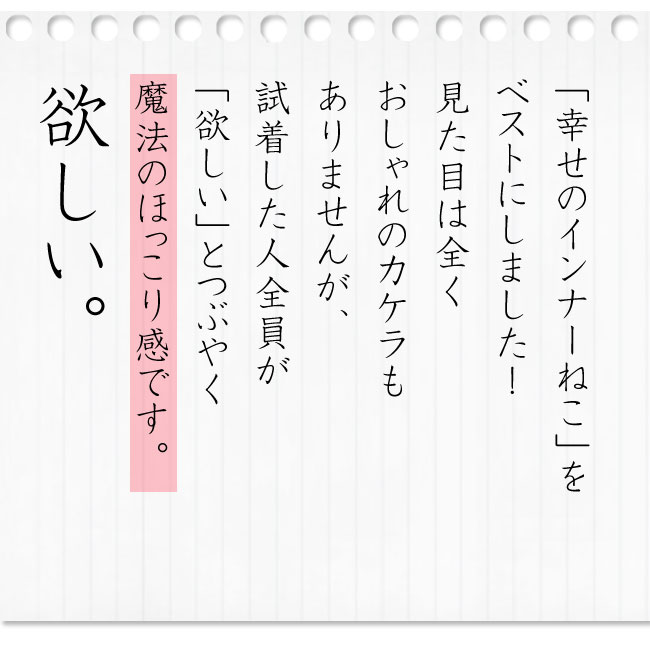 「幸せのインナーねこ」を
ベストにしました！
見た目は全く
おしゃれのカケラも
ありませんが、
試着した人全員が
「欲しい」とつぶやく
魔法のほっこり感です。
欲しい。